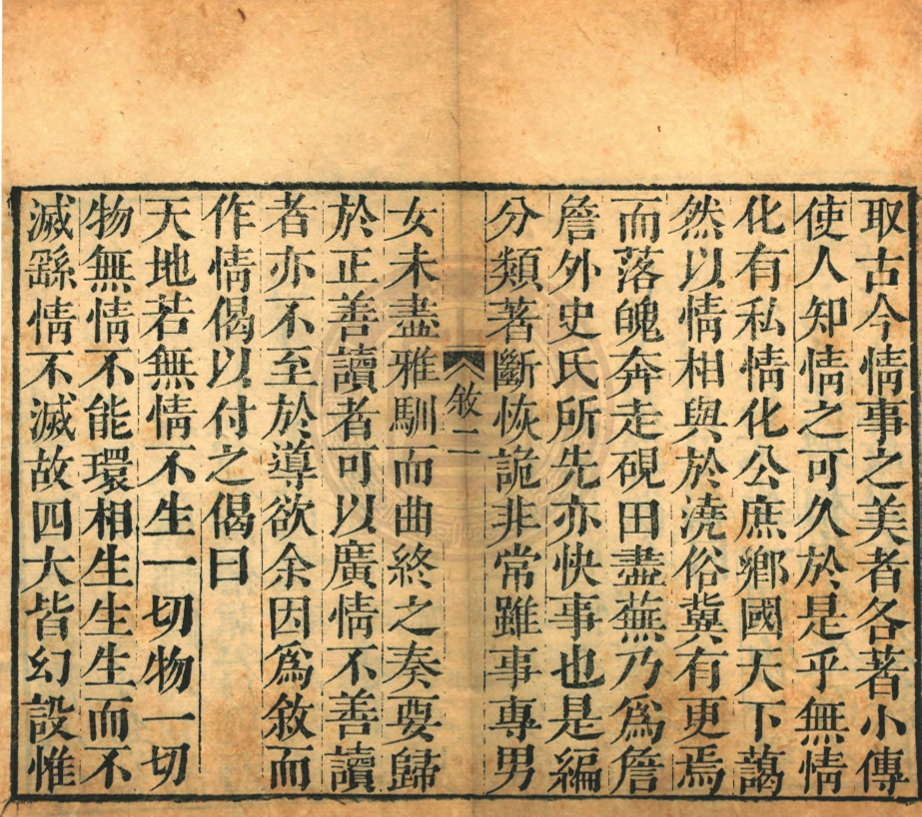 取古今情事之美者各著小傳
使人知情之可久於是乎無情
化有私情化公庶鄉國天下藹
然以情相與於澆俗冀有更焉
而落魄奔走硯田盡蕪乃爲詹
詹外史氏所先亦快事也是編
分類著斷恢詭非常雖事專男
敘二
女未盡雅馴而曲終之奏要歸
於正善讀者可以廣情不善讀
者亦不至於導欲余因爲敘而
作情偈以付之偈曰
天地若無情不生一切物一切
物無情不能環相生生生而不
滅繇情不滅故四大皆幻設惟